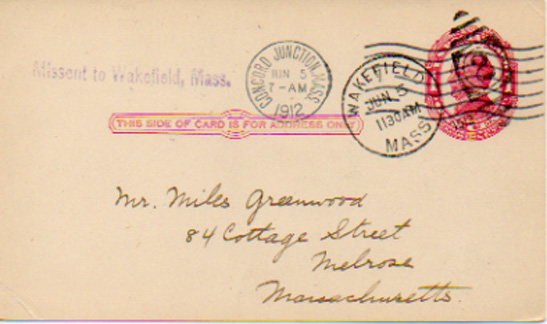 Missent to Wakefield, Mass.
CONCORD JUNCTION, MASS
JUN 5
7-AM
1912
WAKEFIELD
JUN 5
1130AM
MASS
THIS SIDE OF CARD IS FOR ADDRESS ONLY
Mr. Miles Greenwood
84 Cottage Street
Melrose
Massachusetts.